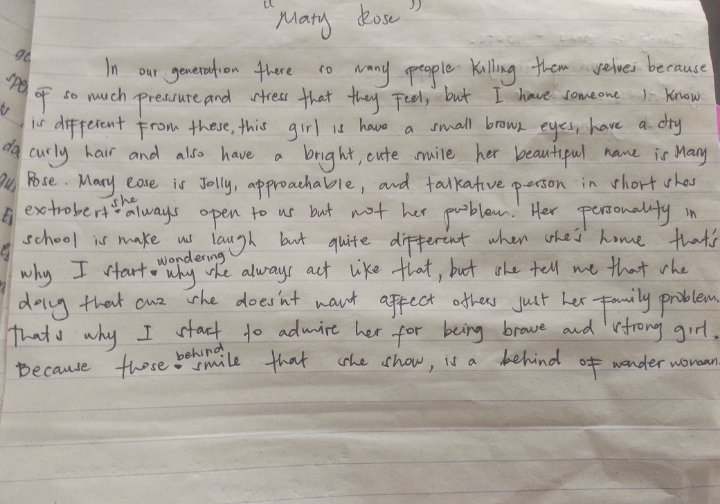 "Mary Rose"
In our generation there so many people killing them selves because
of so much pressure and stress that they feel, but I have someone I know
is different from these, this girl is have a small brown eyes, have a dry
curly hair and also have a bright, cute smile her beautiful name is Mary
Rose. Mary Rose is Jolly, approachable, and talkative person in short shes
extrobert. she always open to us but not her problem. Her personality in
school is make us laugh but quite different when she's home that's
why I start wondering why she always act like that, but she tell me that she
doing that cuz she does'nt want affect others just her family problem.
that's why I start to admire her for being brave and strong girl.
Because those behind smile that she show, is a behind of wonder woman.